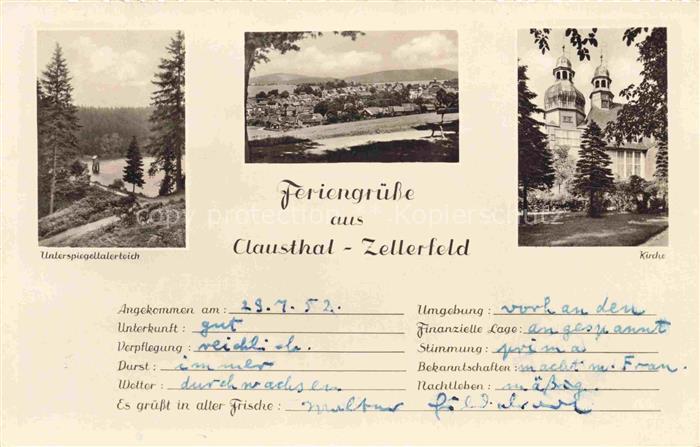 Unterspiegeltalerteich
Kirche
Feriengrüße
aus
Clausthal - Zellerfeld
copy protection Kopierschutz
Angekommen am: 29.7.52.
Unterkunft: gut
Verpflegung: reichlich.
Durst: immer
Wetter: durchwachsen
Es grüßt in alter Frische:
Umgebung: vorhanden
Finanzielle Lage: angespannt
Stimmung: prima
Bekanntschaften: macht m. Frau.
Nachtleben: mäßig.